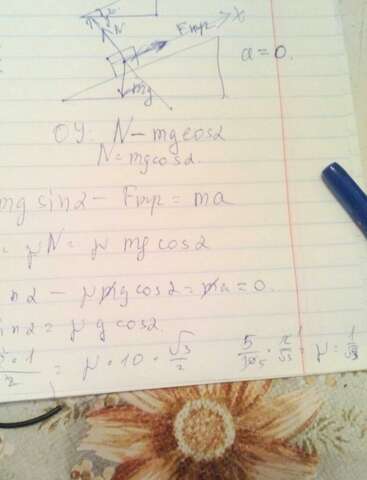 N Fтр x
a = 0.
mg
OY: N - mg cos2
N = mg cos2.
mg sin2 - Fтр = ma
= μN = μ mg cos2
in2 - μmg cos2 = ma = 0.
in2 = μ g cos2.
· 1/2 = μ · 10 · √3/2 5/10 · 2/√3 = μ = 1/√3